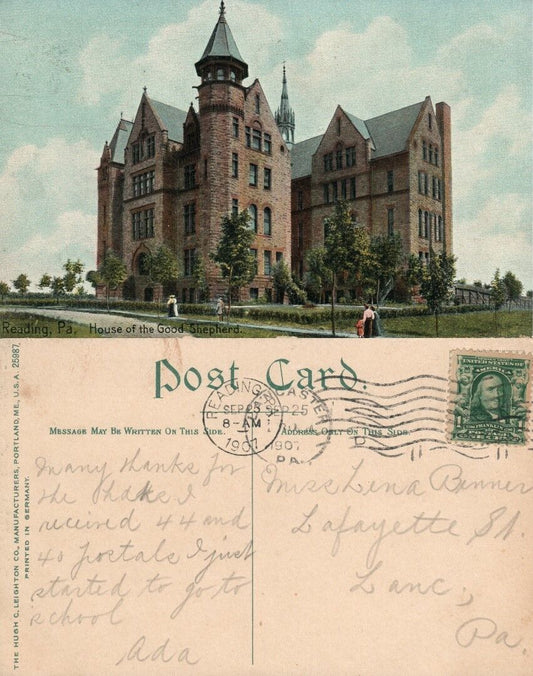 Reading, Pa. House of the Good Shepherd.
THE HUGH C. LEIGHTON CO., MANUFACTURERS, PORTLAND, ME., U.S.A. 25987
PRINTED IN GERMANY.
Post Card.
READING
SEP 25
8-AM
1907
LANCASTER
SEP 25
1907
PA.
UNITED STATES OF AMERICA
MESSAGE MAY BE WRITTEN ON THIS SIDE.
ADDRESS ONLY ON THIS SIDE
Many thanks for
the I
received 44 and
40 postals I just
started to go to
school
Ada
Miss Lena Benner
Lafayette St.
Lanc,
Pa.